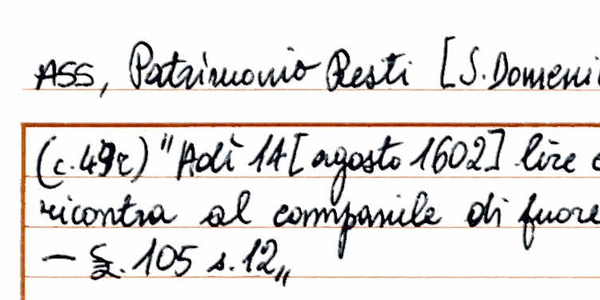 ASS, Patrimonio Resti [S. Domeni
(c. 49r) "Adì 14 [agosto 1602] lire
ricontra al campanile di fuore
— £. 105 s. 12,,